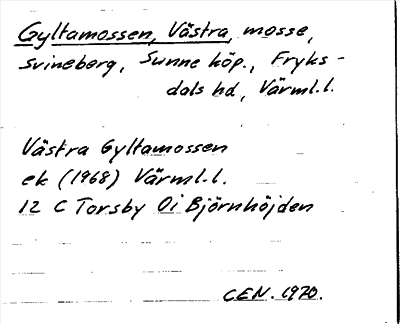 Gyltamossen, Västra, mosse,
Svineberg, Sunne köp., Fryks-
dals hd, Värml.l.
Västra Gyltamossen
ek (1968) Värml.l.
12 C Torsby 0i Björnhöjden
CEN. 1970.